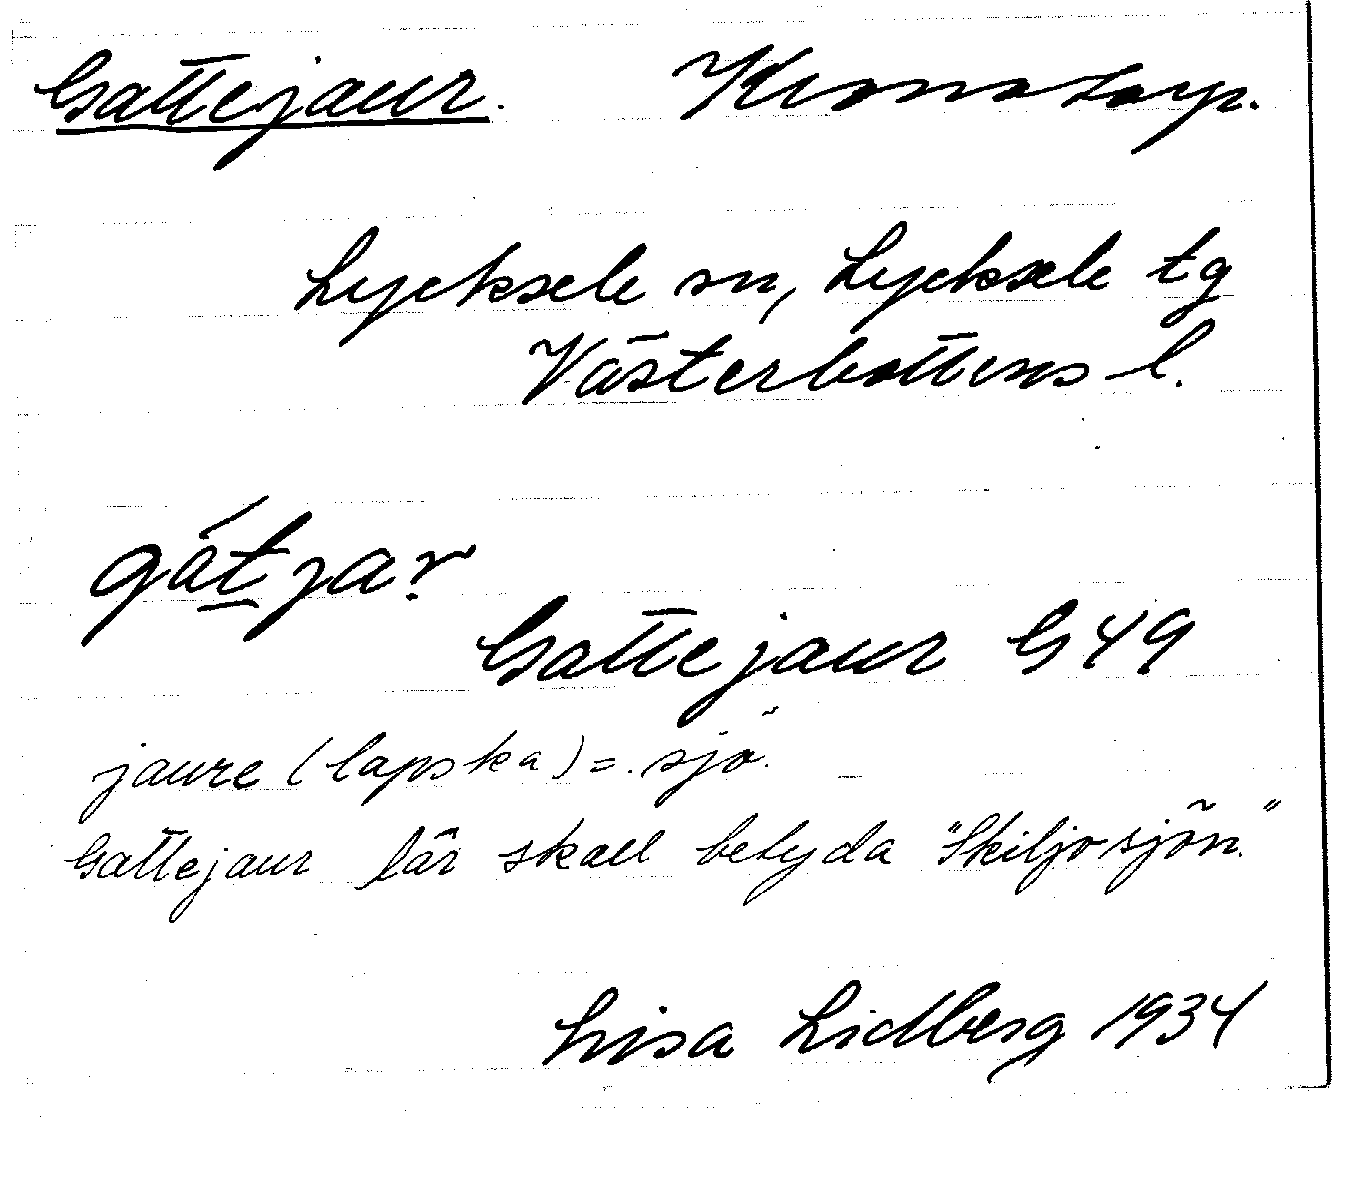 Gattejaur. Kronotorp.
Lycksele sn, Lycksele tg
Västerbottens l.
gát̠jar
Gattejaur G49
jaure (lapska) = sjö.
Gattejaur lär skall betyda "Skiljosjön."
Lisa Lidberg 1934